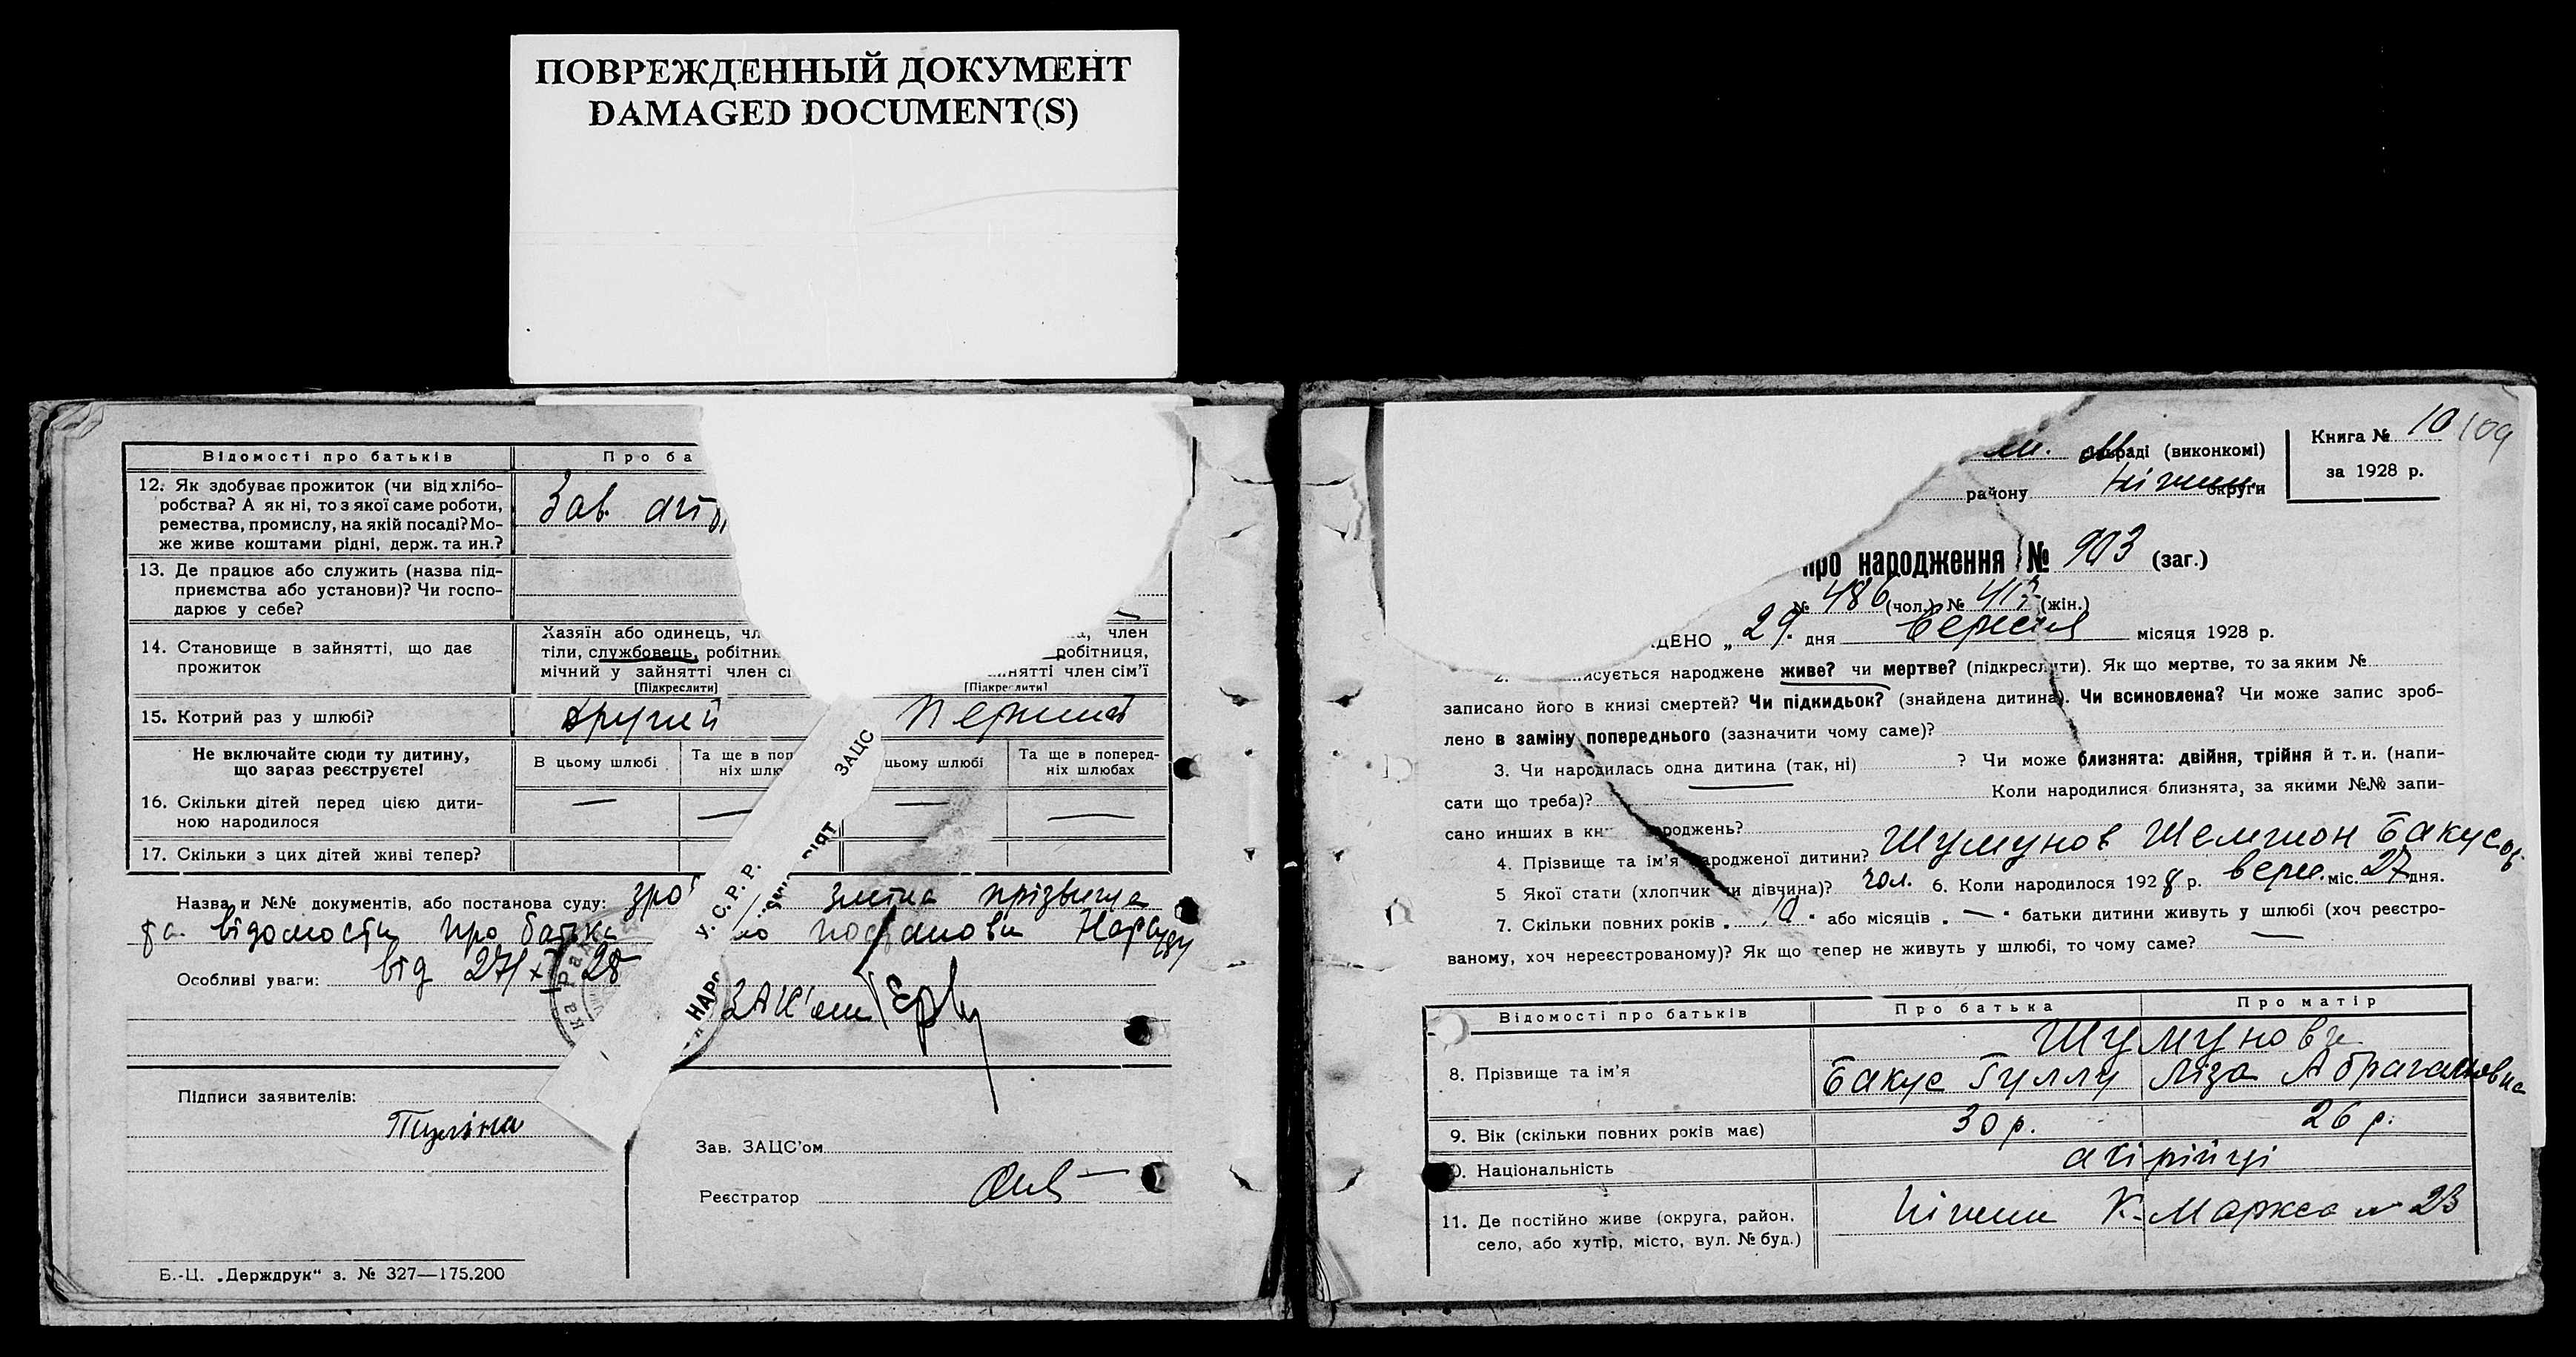 ПОВРЕЖДЕННЫЙ ДОКУМЕНТ
DAMAGED DOCUMENT(S)
Відомості про батьків
Про ба
12. Як здобуває прожиток (чи від хлібо-
робства? А як ні, то з якої саме роботи,
ремества, промислу, на якій посаді? Мо-
же живе коштами рідні, держ. та ин.?
Зав.
13. Де працює або служить (назва під-
приємства або установи)? Чи госпо-
дарює у себе?
14. Становище в зайнятті, що дає
прожиток
Хазяїн або одинець, чл
тіли, службовець, робітник
мічний у зайнятті член сі
[Підкреслити]
а, член
робітниця,
нятті член сім'ї
[Підкреслити]
15. Котрий раз у шлюбі?
другий
перший
Не включайте сюди ту дитину,
що зараз реєструєте!
В цьому шлюбі
Та ще в поп
ніх шлю
цьому шлюбі
Та ще в поперед-
ніх шлюбах
16. Скільки дітей перед цією дити-
ною народилося
— — — —
17. Скільки з цих дітей живі тепер?
У.С.Р.Р.
ЗАЦС
НАР
Назва и №№ документів, або постанова суду: зро зміна прізвища
та відомости про батька по постанови Нарсуду
Особливі уваги: від 27/XI 28
Підписи заявителів:
Зав. ЗАЦС'ом
Реєстратор
Б.-Ц. „Держдрук“ з. № 327—175.200
м. раді (виконкомі)
району Ніжин округи
Книга № 10
за 1928 р.
109
про народження № 903 (заг.)
№ 486 (чол.) № 417 (жін.)
ДЕНО „29“ дня вересня місяця 1928 р.
2. исується народжене живе? чи мертве? (підкреслити). Як що мертве, то за яким №
записано його в книзі смертей? Чи підкидьок? (знайдена дитина). Чи всиновлена? Чи може запис зроб-
лено в заміну попереднього (зазначити чому саме)?
3. Чи народилась одна дитина (так, ні) ? Чи може близнята: двійня, трійня й т. и. (напи-
сати що треба)? Коли народилися близнята, за якими №№ запи-
сано инших в кн роджень?
4. Прізвище та ім'я народженої дитини? Шумунов Шемшон Бакусов
5 Якої стати (хлопчик чи дівчина)? чол. 6. Коли народилося 1928 р. верес. міс. 27 дня.
7. Скільки повних років „10“ або місяців „—“ батьки дитини живуть у шлюбі (хоч реєстро-
ваному, хоч нереєстрованому)? Як що тепер не живуть у шлюбі, то чому саме? —
Відомості про батьків
Про батька
Про матір
8. Прізвище та ім'я
Шумунови
Бакус Гуллу
Ліза Абрагамовна
9. Вік (скільки повних років має)
30 р.
26 р.
0. Національність
асірійці
11. Де постійно живе (округа, район,
село, або хутір, місто, вул. № буд.)
Ніжин К. Маркса № 23